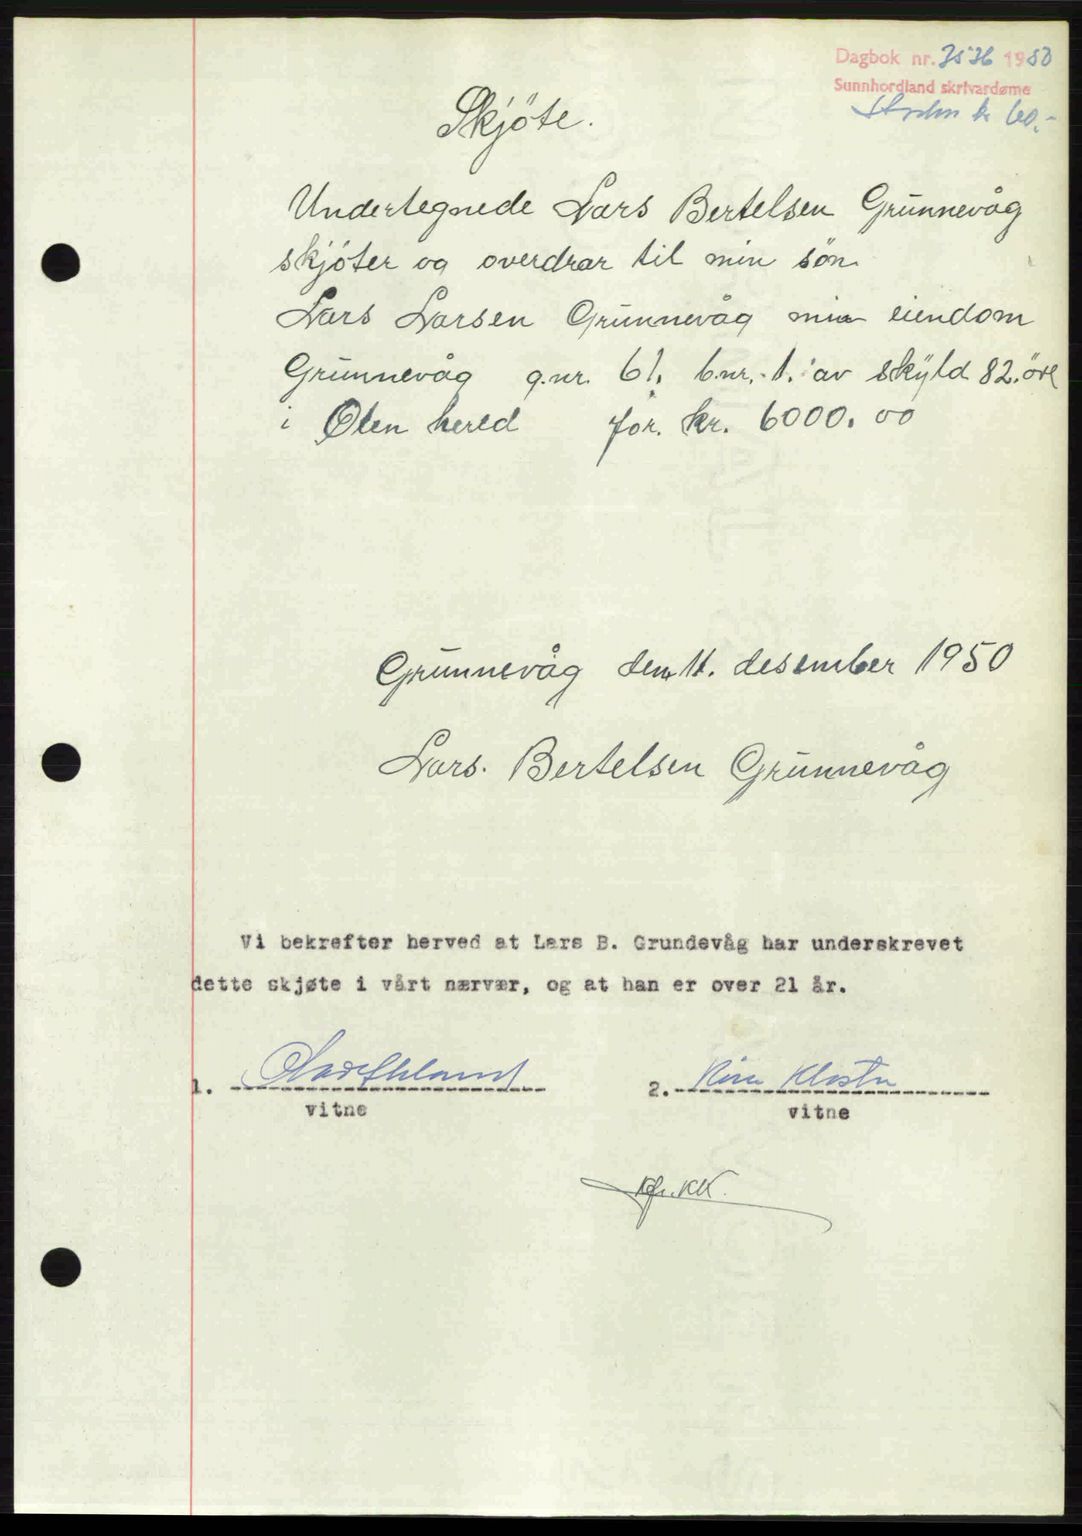 Dagbok nr. 3536 1950
Sunnhordland skrivardøme
kr 60.-
Skjöte.
Undertegnede Lars Bertelsen Grunnevåg
skjöter og overdrar til min sön
Lars Larsen Grunnevåg min eiendom
Grunnevåg g.nr. 61, b.nr. 1. av skyld 82. öre
i Ølen hered for. kr. 6000.00
Grunnevåg den 11. desember 1950
Lars. Bertelsen Grunnevåg
Vi bekrefter herved at Lars B. Grundevåg har underskrevet
dette skjøte i vårt nærvær, og at han er over 21 år.
1.
2. Klosta
vitne vitne